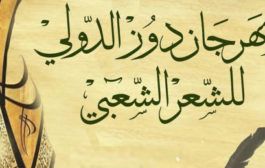 هرجان دوز الدّولي
للشّعر الشّعبيّ